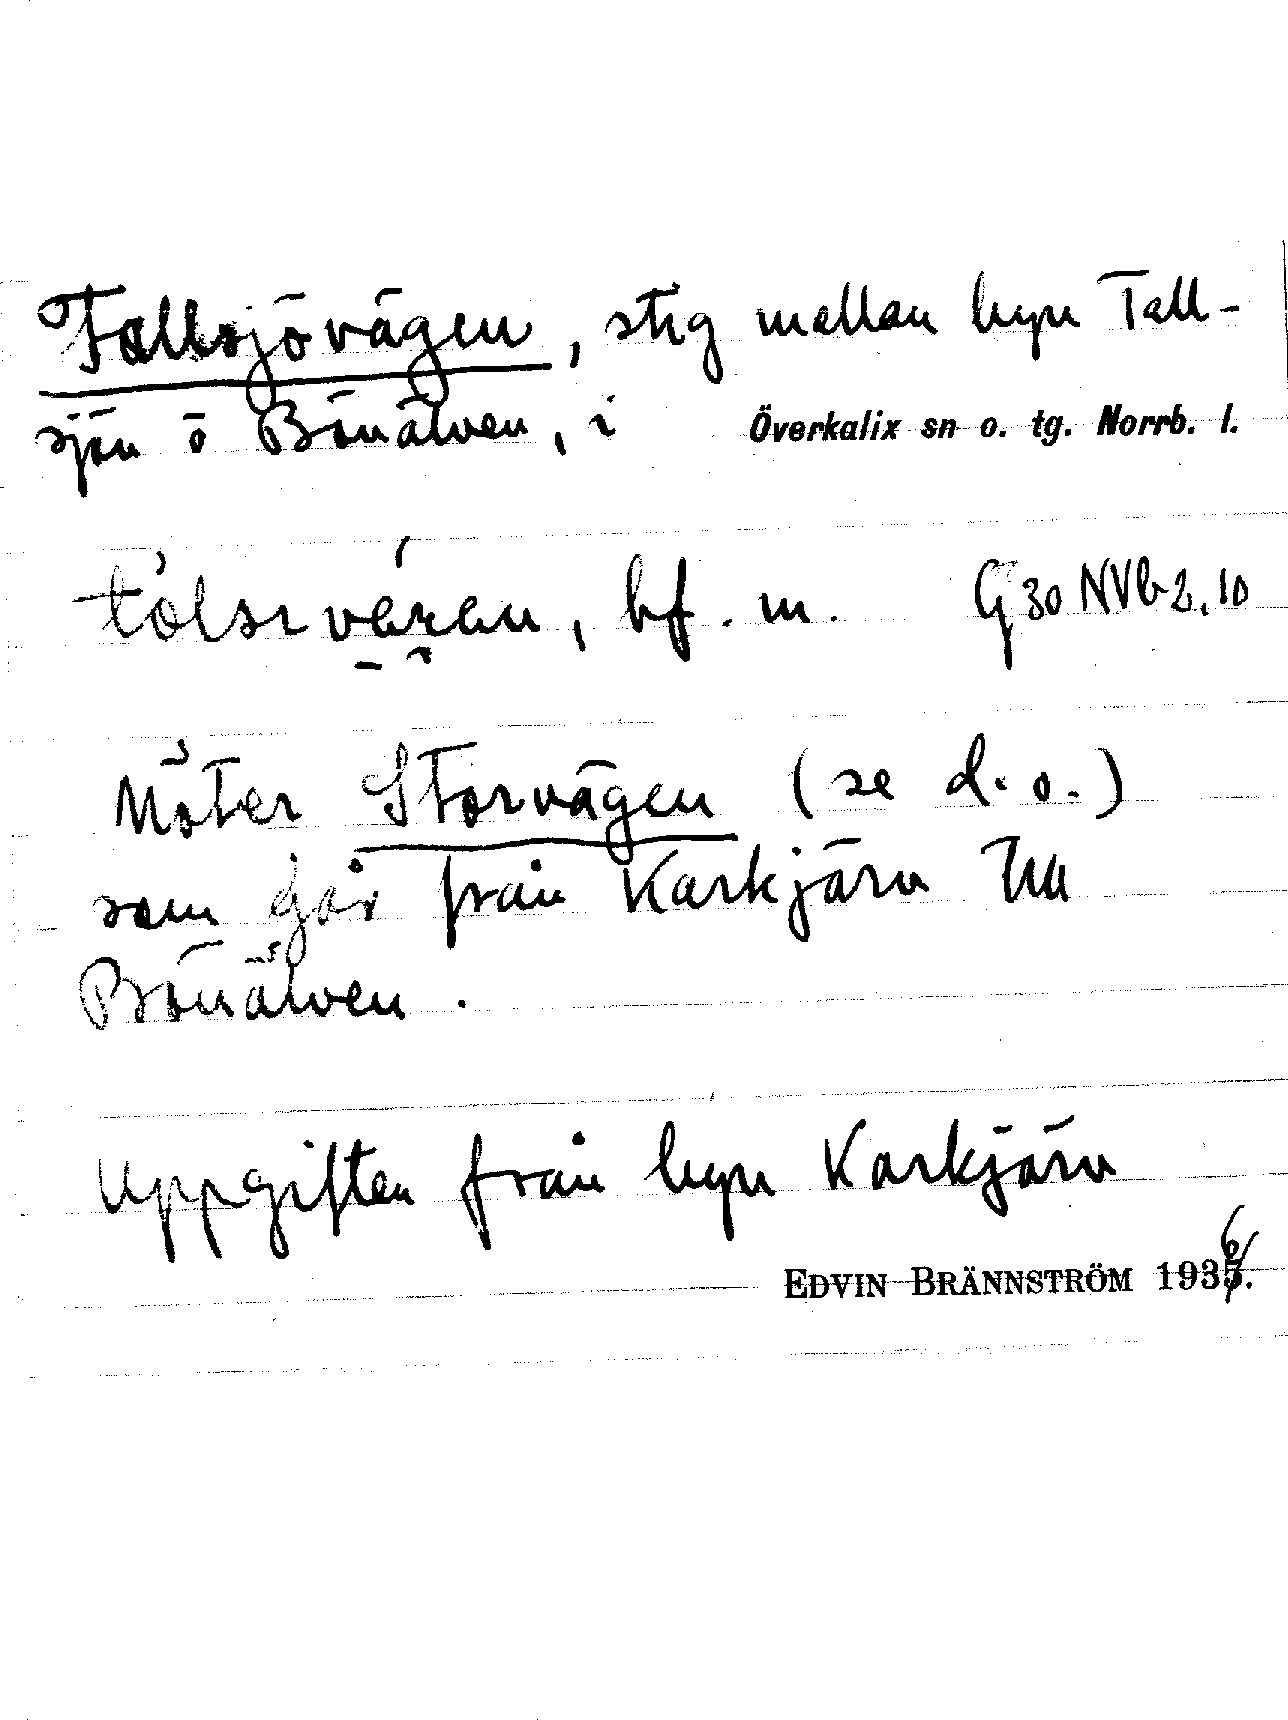 Tallsjövägen, stig mellan byn Tall-
sjön o Bönälven, i Överkalix sn o. tg. Norrb. l.
bf. m. G 30 NVb 2, 10
Möter Storvägen (se d. o.)
som går från Karkjärv till
Bönälven.
Uppgiften från byn Karkjärv
EDVIN BRÄNNSTRÖM 1936.